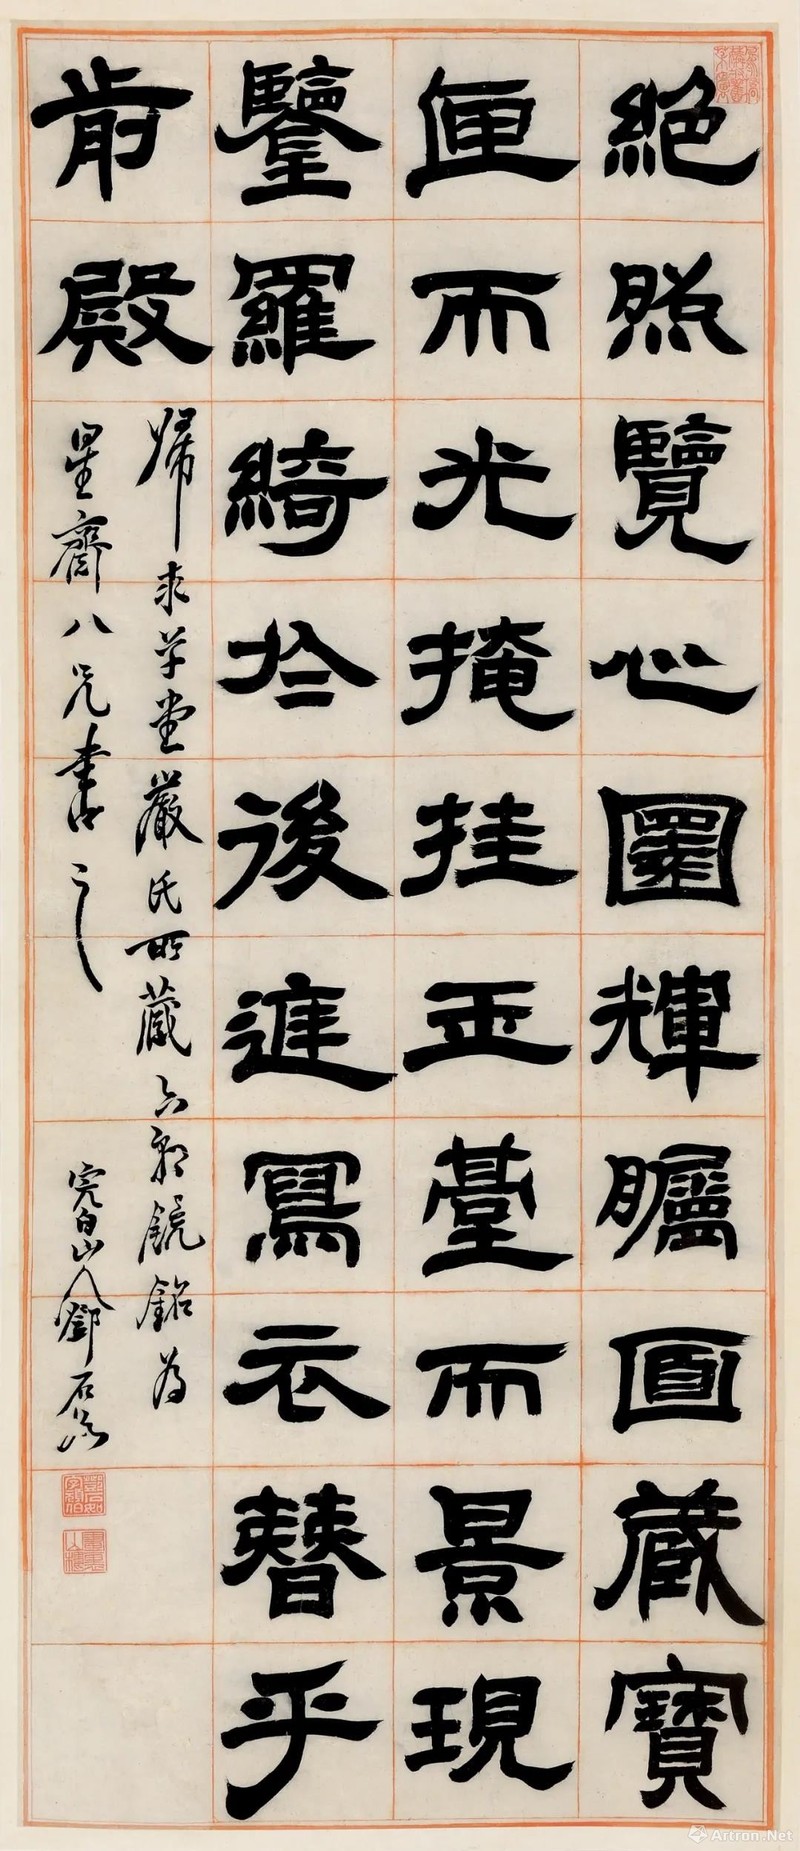 絕照覽心圜輝矚面藏寶
匣而光掩挂玉臺而景現
鑒羅綺於後進寫衣簪乎
前殿
歸求草堂嚴氏所藏六朝鏡銘為
星齋八兄書之
完白山人鄧石如
Artron.Net